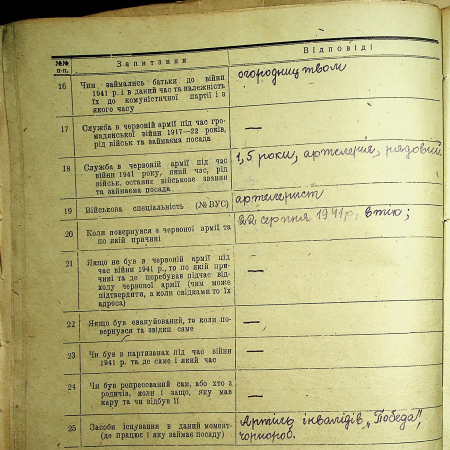 №№ п-п. Запитання Відповіді
16 Чим займались батьки до війни огородництвом
1941 р. і в даний час та належність
їх до комуністичної партії і з
якого часу
17 Служба в червоній армії під час гро- —
мадянської війни 1917—22 років,
рід військ та займаєма посада
18 Служба в червоній армії під час 1,5 роки, артелерия, рядовий
війни 1941 року, який час, рід
військ, останнє військове звання
та займаєма посада
19 Військова спеціальність (№ ВУС) артелерист
20 Коли повернувся з червоної армії та 22 серпня 1941 р,
по якій причині
21 Якщо не був в червоній армії під —
час війни 1941 р., то по якій при-
чині та де перебував підчас від-
ходу червоної армії (чим може
підтвердити, а коли свідками то їх
адреса)
22 Якщо був евакуйований, то коли по- —
вернувся та звідки саме
23 Чи був в партизанах під час війни —
1941 р. та де саме і який час
24 Чи був репресований сам, або хто з —
родичів, коли і защо, яку мав
кару та чи відбув її
25 Засоби існування в даний момент- Артіль інвалідів „Побєда",
(де працює і яку займає посаду) чорнороб.